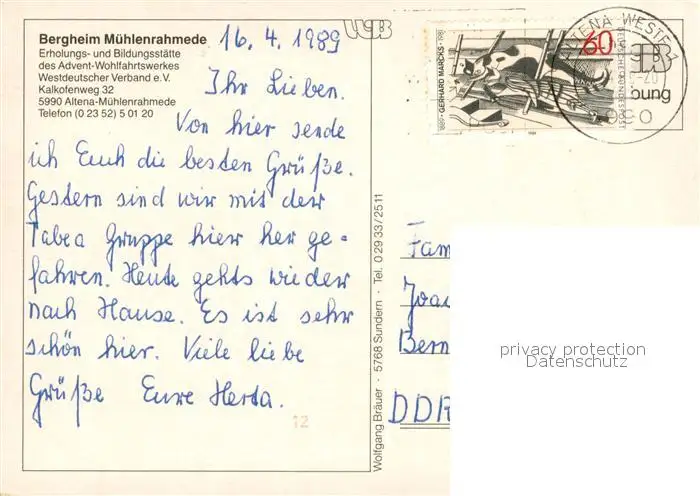 Bergheim Mühlenrahmede
Erholungs- und Bildungsstätte
des Advent-Wohlfahrtswerkes
Westdeutscher Verband e.V.
Kalkofenweg 32
5990 Altena-Mühlenrahmede
Telefon (0 23 52) 5 01 20
16. 4. 1989
Ihr Lieben.
Von hier sende
ich Euch die besten Grüße.
Gestern sind wir mit der
Tabea Gruppe hier her ge-
fahren. Heute gehts wieder
nach Hause. Es ist sehr
schön hier. Viele liebe
Grüße Eure Herta.
12
Wolfgang Bräuer · 5768 Sundern · Tel. 0 29 33 / 25 11
1889 · GERHARD MARCKS · 1981
60
DEUTSCHE BUNDESPOST
ALTENA WESTF 1
bung
Fam
Joac
Bern
DDR
privacy protection
Datenschutz